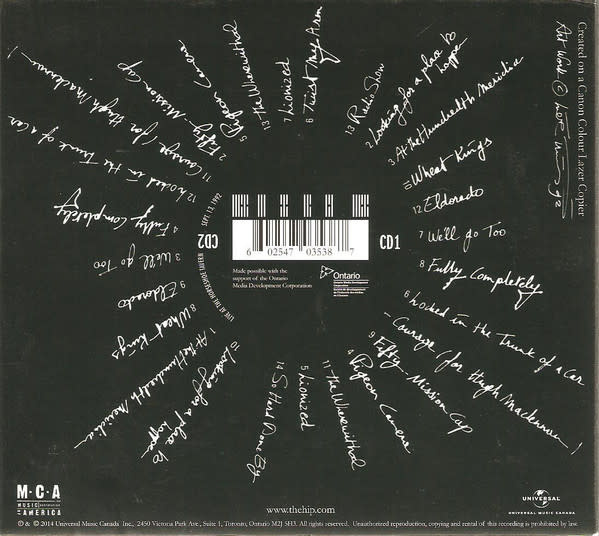 Created on a Canon Colour Lazer Copier
Art Work ©
13 Radio Show
2 Looking for a place to
happe
3 At the Hundredth Meridian
Wheat Kings
12 Eldorado
7 We'll go Too
8 Fully Completely
6 Locked in the Trunk of a Car
Courage (for Hugh Maclennan)
9 Fifty-Mission Cap
4 Pigeon Camera
11 The Wherewithal
5 Lionized
14 So Hard Done By
10 Looking for a place to
happe
1 At the Hundredth Meridian
8 Wheat Kings
9 Eldorado
3 We'll go Too
4 Fully Completely
12 Locked in the Trunk of a Car
11 Courage (for Hugh Maclennan)
2 Fifty-Mission Cap
5 Pigeon Camera
13 The Wherewithal
7 Lionized
6 Twist My Arm
CD1
CD2
LIVE AT THE HORSESHOE
SEPT. 13, 1992
6 02547 03538 7
Made possible with the
support of the Ontario
Media Development Corporation
Ontario
Ontario Media Development
Corporation
M·C·A
MUSIC CORPORATION
OF AMERICA
UNIVERSAL
UNIVERSAL MUSIC CANADA
www.thehip.com
℗ & © 2014 Universal Music Canada Inc., 2450 Victoria Park Ave., Suite 1, Toronto, Ontario M2J 5H3. All rights reserved. Unauthorized reproduction, copying and rental of this recording is prohibited by law.